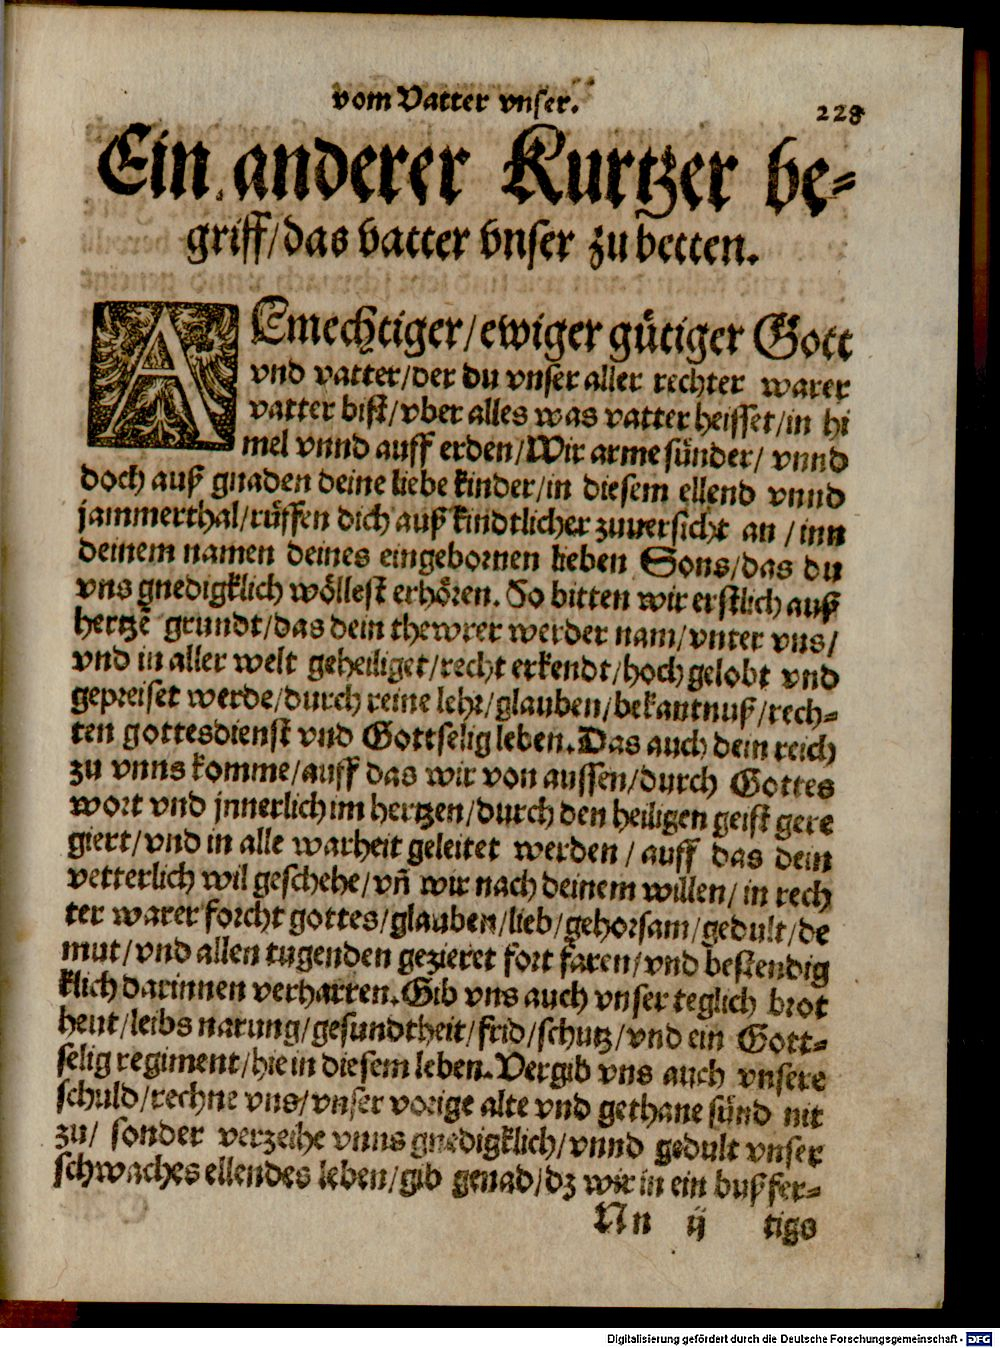 vom Vatter vnser.
228
Ein anderer Kurtzer be-
griff/das vatter vnser zu betten.
ALmechtiger/ewiger gütiger Gott
vnd vatter/der du vnser aller rechter warer
vatter bist/vber alles was vatter heisset/in hi
mel vnnd auff erden/Wir arme sünder/ vnnd
doch auß gnaden deine liebe kinder/in diesem ellend vnnd
jammerthal/rüffen dich auß kindtlicher zuuersicht an /inn
deinem namen deines eingebornen lieben Sons/das du
vns gnedigklich wöllest erhören. So bitten wir erstlich auß
hertzē grundt/das dein thewrer werder nam/vnter vns/
vnd in aller welt geheiliget/recht erkendt/hoch gelobt vnd
gepreiset werde/durch reine lehr/glauben/bekantnuß/rech-
ten gottesdienst vnd Gottselig leben. Das auch dein reich
zu vnns komme/auff das wir von aussen/durch Gottes
wort vnd jnnerlich im hertzen/durch den heiligen geist gere
giert/vnd in alle warheit geleitet werden / auff das dein
vetterlich wil geschehe/vñ wir nach deinem willen/in rech
ter warer forcht gottes/glauben/lieb/gehorsam/gedult/de
mut/vnd allen tugenden gezieret fort faren/vnd bestendig
klich darinnen verharren. Gib vns auch vnser teglich brot
heut/leibs narung/gesundtheit/frid/schutz/vnd ein Gott-
selig regiment/hie in diesem leben. Vergib vns auch vnsere
schuld/rechne vns/vnser vorige alte vnd gethane sünd nit
zu/ sonder verzeihe vnns gnedigklich/vnnd gedult vnser
schwaches ellendes leben/gib genad/dz wir in ein bußfer-
Nn ij tigs
Digitalisierung gefördert durch die Deutsche Forschungsgemeinschaft - DFG